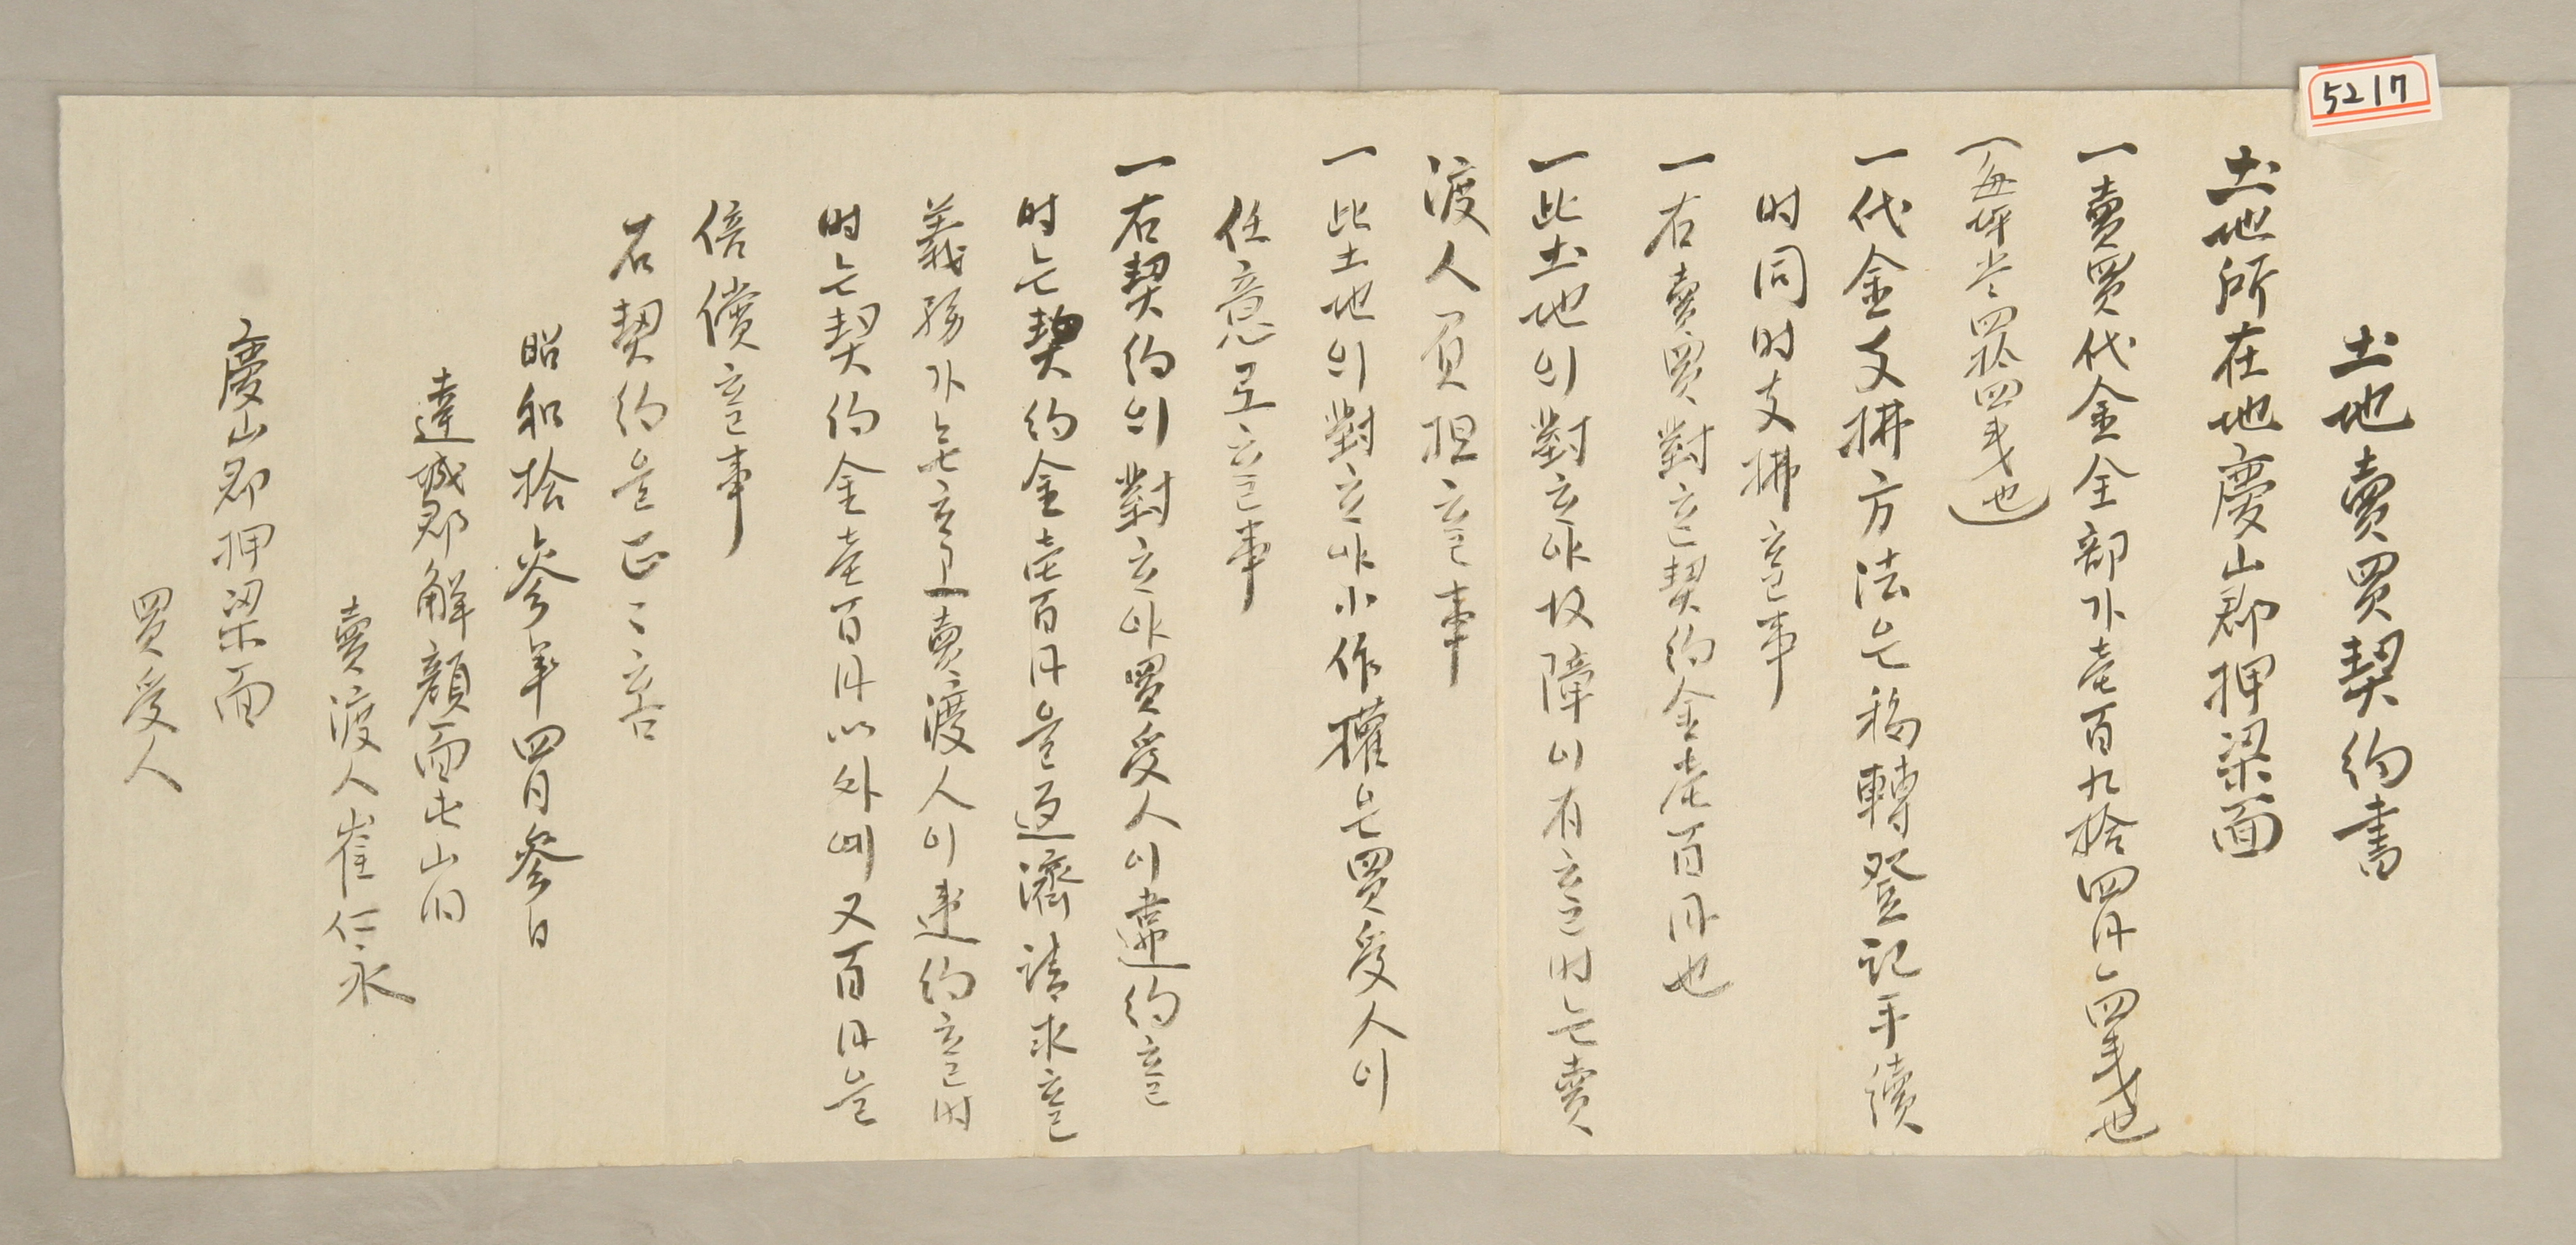 5217
土地賣買契約書
土地所在地慶山郡押梁面
一賣買代金全部가壹百九拾四円四戔也
(每坪当四拾四戔也)
一代金支拂方法은移轉登記手續
时同时支拂함事
一右賣買對한契約金壹百円也
一此土地의對하야故障이有할时는賣
渡人負担할事
一此土地의對하야小作權은買受人이
任意로할事
一右契約의對하야買受人이違約할
时는契約金壹百円을返濟請求할
義務가無하고賣渡人이違約할
时는契約金壹百円以外에又百円을
倍償할事
右契約을正히함
昭和拾參年四月參日
達城郡解顔面屯山洞
賣渡人崔仁永
慶山郡押梁面
買受人